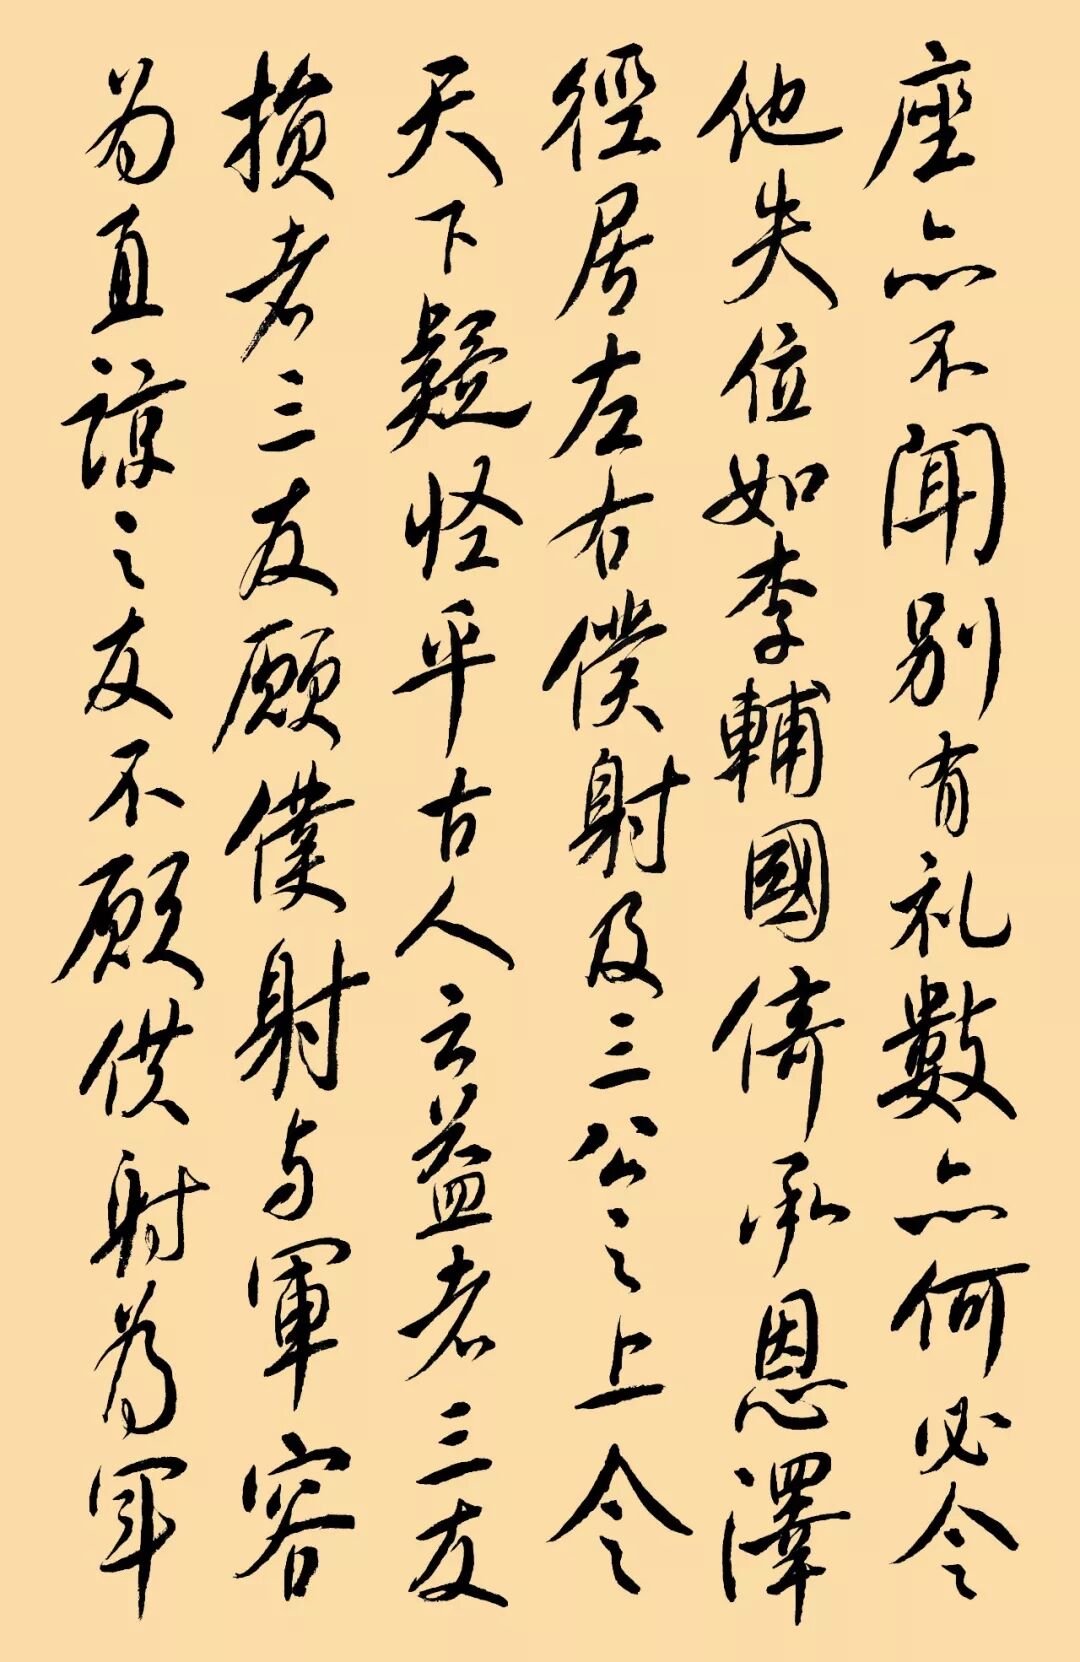 座亦不闻别有礼數亦何必令
他失位如李輔國倚承恩澤
徑居左右僕射及三公之上令
天下疑怪平古人云益者三友
損者三友願僕射与軍容
为直諒之友不願僕射為军